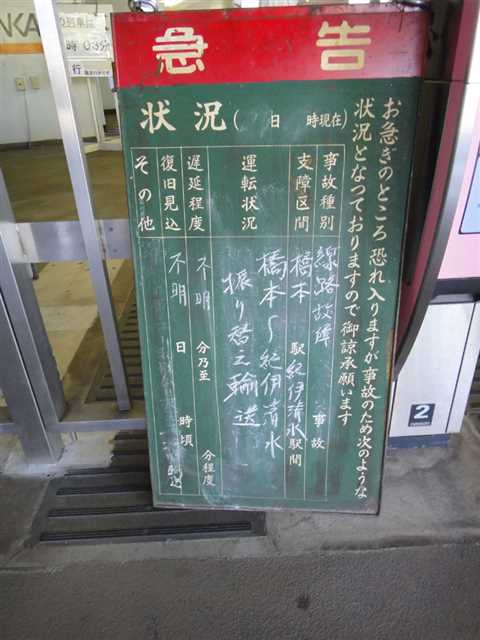 急告
お急ぎのところ恐れ入りますが事故のため次のような
状況となっておりますので御諒承願います
状況( 日 時現在)
事故種別 線路故障 事故
支障区間 橋本 駅 紀伊清水 駅間
運転状況 橋本〜紀伊清水
振り替え輸送
遅延程度 不明 分乃至 分程度
復旧見込 不明 日 時頃
その他
2